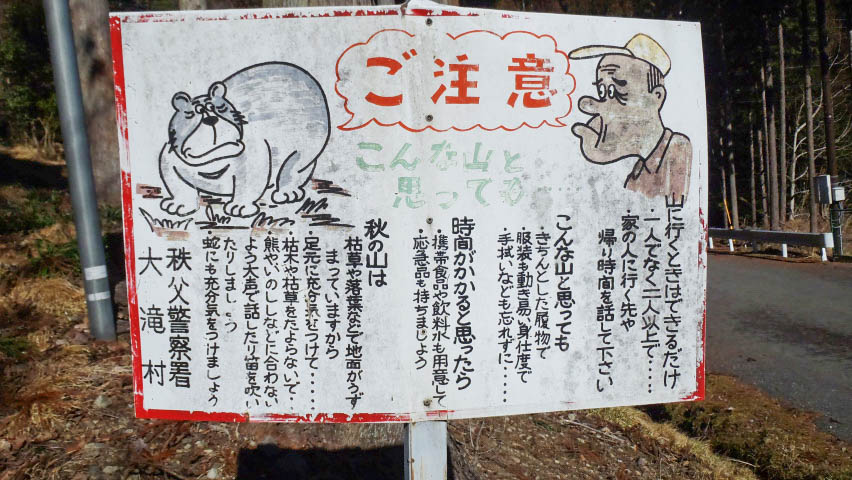 ご注意
こんな山と
思ってか
山に行くときはできるだけ
一人でなく二人以上で・・・・
・家の人に行く先や
帰り時間を話して下さい
こんな山と思っても
・きちんとした履物で
・服装も動き易い身仕度で
・手拭いなども忘れずに・・・・
時間がかかると思ったら
・携帯食品や飲料水も用意して
・応急品も持ちましょう
秋の山は
枯草や落葉などで地面がうず
まっていますから
足元に充分気をつけて・・・・・
・枯木や枯草をたよらないで・
・熊やいのししなどに合わない
よう大声で話したり笛を吹い
たりしましょう
・蛇にも充分気をつけましょう
秩父警察署
大滝村